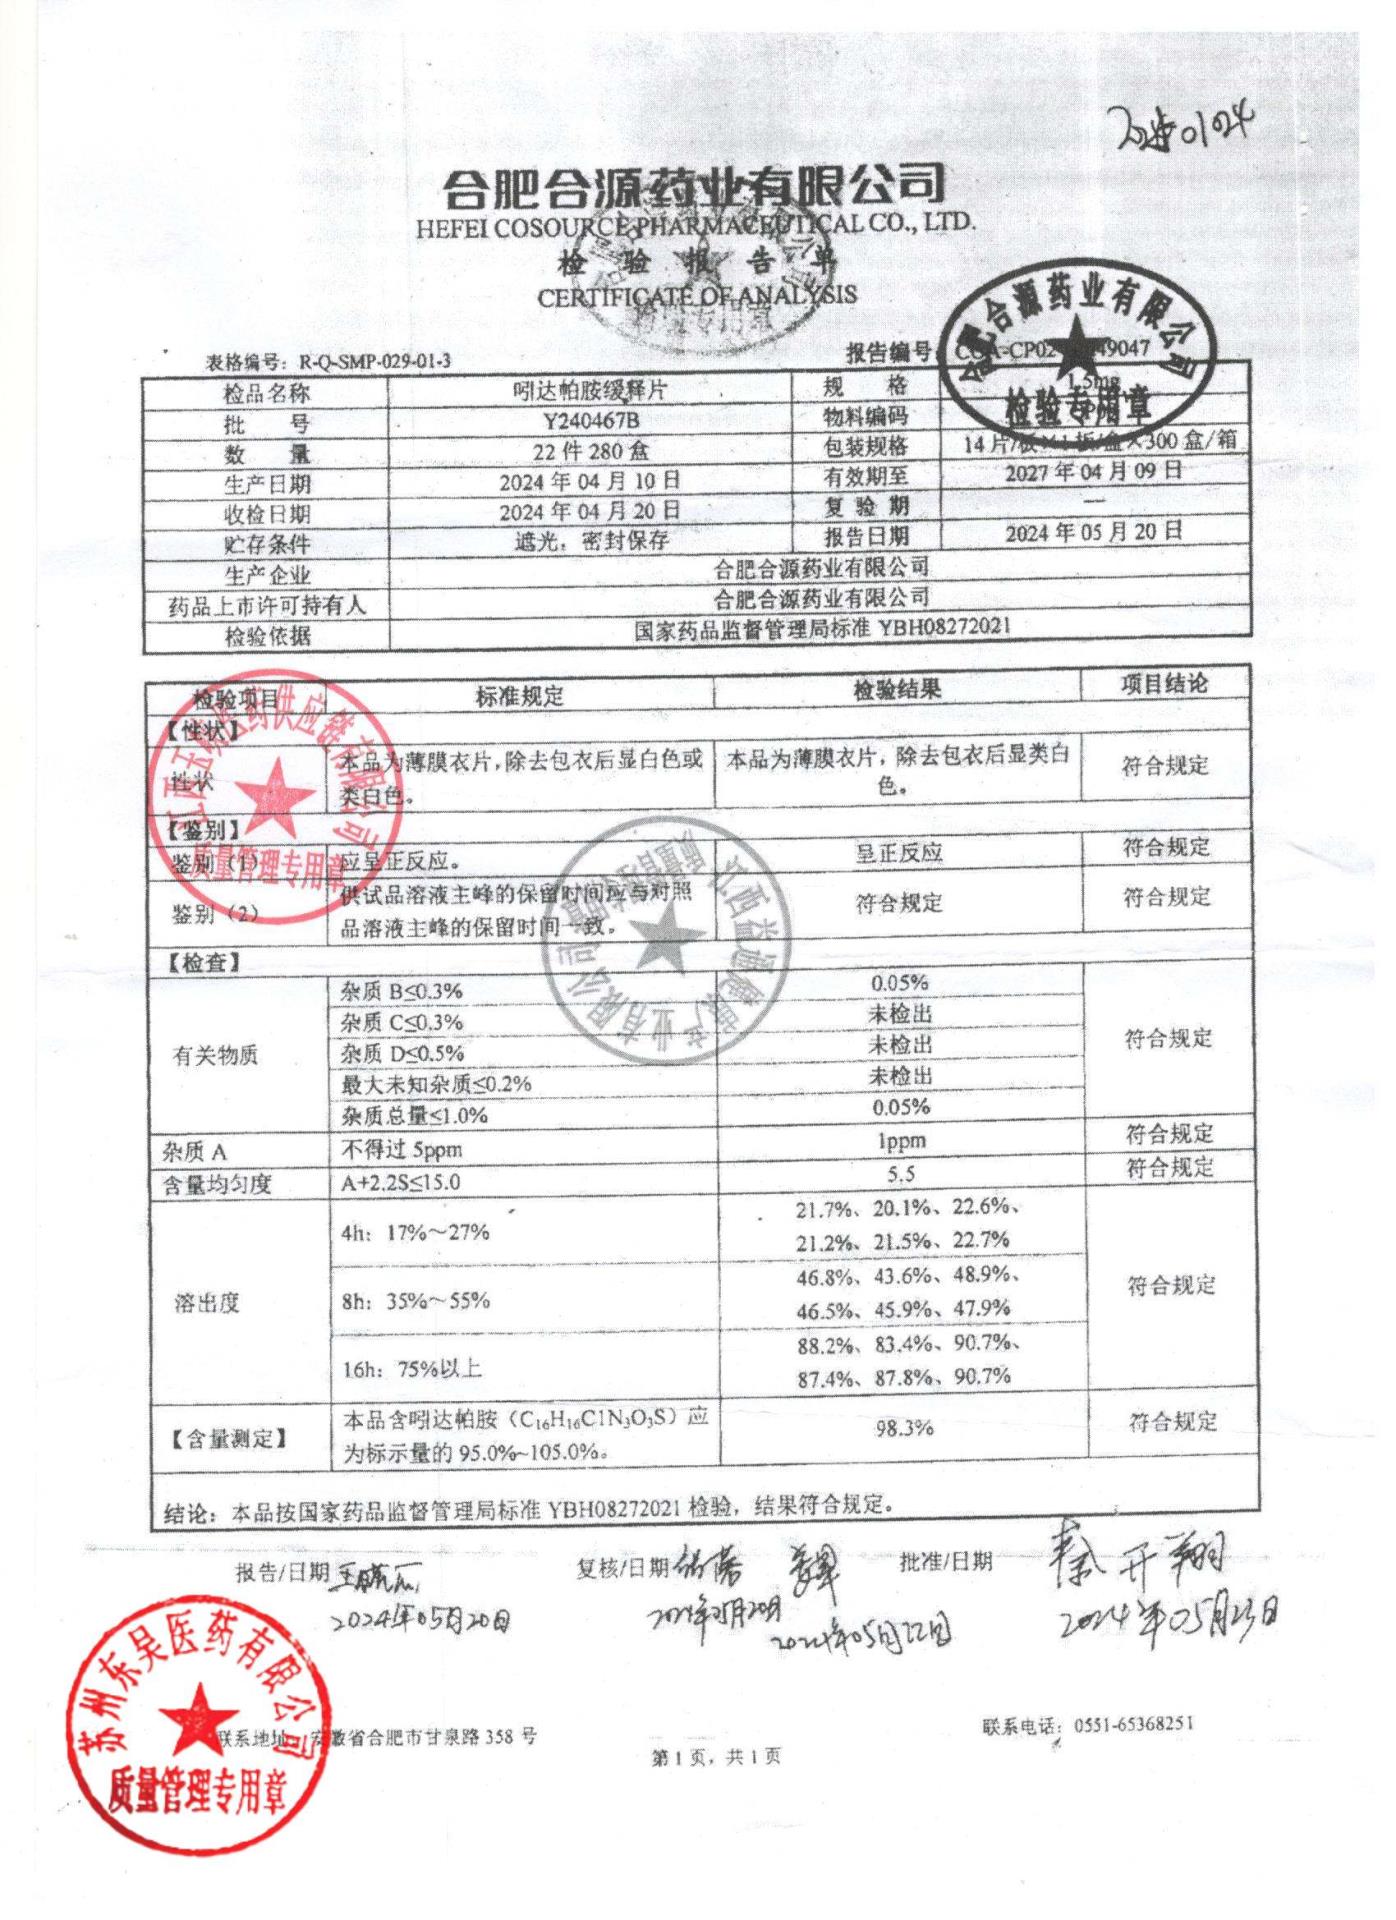 合肥合源药业有限公司
HEFEI COSOURCE PHARMACEUTICAL CO., LTD.
检 验 报 告 单
CERTIFICATE OF ANALYSIS
合肥合源药业有限公司
检验专用章
表格编号：R-Q-SMP-029-01-3 报告编号：
检品名称 吲达帕胺缓释片 规 格 1.5mg
批 号 Y240467B 物料编码
数 量 22 件 280 盒 包装规格 14 片/板×1板/盒×300 盒/箱
生产日期 2024 年 04 月 10 日 有效期至 2027 年 04 月 09 日
收检日期 2024 年 04 月 20 日 复 验 期 —
贮存条件 遮光，密封保存 报告日期 2024 年 05 月 20 日
生产企业 合肥合源药业有限公司
药品上市许可持有人 合肥合源药业有限公司
检验依据 国家药品监督管理局标准 YBH08272021
检验项目 标准规定 检验结果 项目结论
【性状】
性状 本品为薄膜衣片，除去包衣后显白色或类白色。 本品为薄膜衣片，除去包衣后显类白色。 符合规定
质量管理专用章
【鉴别】
鉴别（1） 应呈正反应。 呈正反应 符合规定
鉴别（2） 供试品溶液主峰的保留时间应与对照品溶液主峰的保留时间一致。 符合规定 符合规定
【检查】
有关物质 杂质 B≤0.3% 0.05% 符合规定
杂质 C≤0.3% 未检出
杂质 D≤0.5% 未检出
最大未知杂质≤0.2% 未检出
杂质总量≤1.0% 0.05%
杂质 A 不得过 5ppm 1ppm 符合规定
含量均匀度 A+2.2S≤15.0 5.5 符合规定
溶出度 4h：17%～27% 21.7%、20.1%、22.6%、 符合规定
21.2%、21.5%、22.7%
8h：35%～55% 46.8%、43.6%、48.9%、
46.5%、45.9%、47.9%
16h：75%以上 88.2%、83.4%、90.7%、
87.4%、87.8%、90.7%
【含量测定】 本品含吲达帕胺（C₁₆H₁₆ClN₃O₃S）应为标示量的 95.0%~105.0%。 98.3% 符合规定
结论：本品按国家药品监督管理局标准 YBH08272021 检验，结果符合规定。
报告/日期 复核/日期 批准/日期 秦开翔
2024年05月20日 2024年05月20日 2024年05月22日 2024年05月23日
苏州东吴医药有限公司
质量管理专用章
联系地址：安徽省合肥市甘泉路 358 号 联系电话：0551-65368251
第 1 页，共 1 页